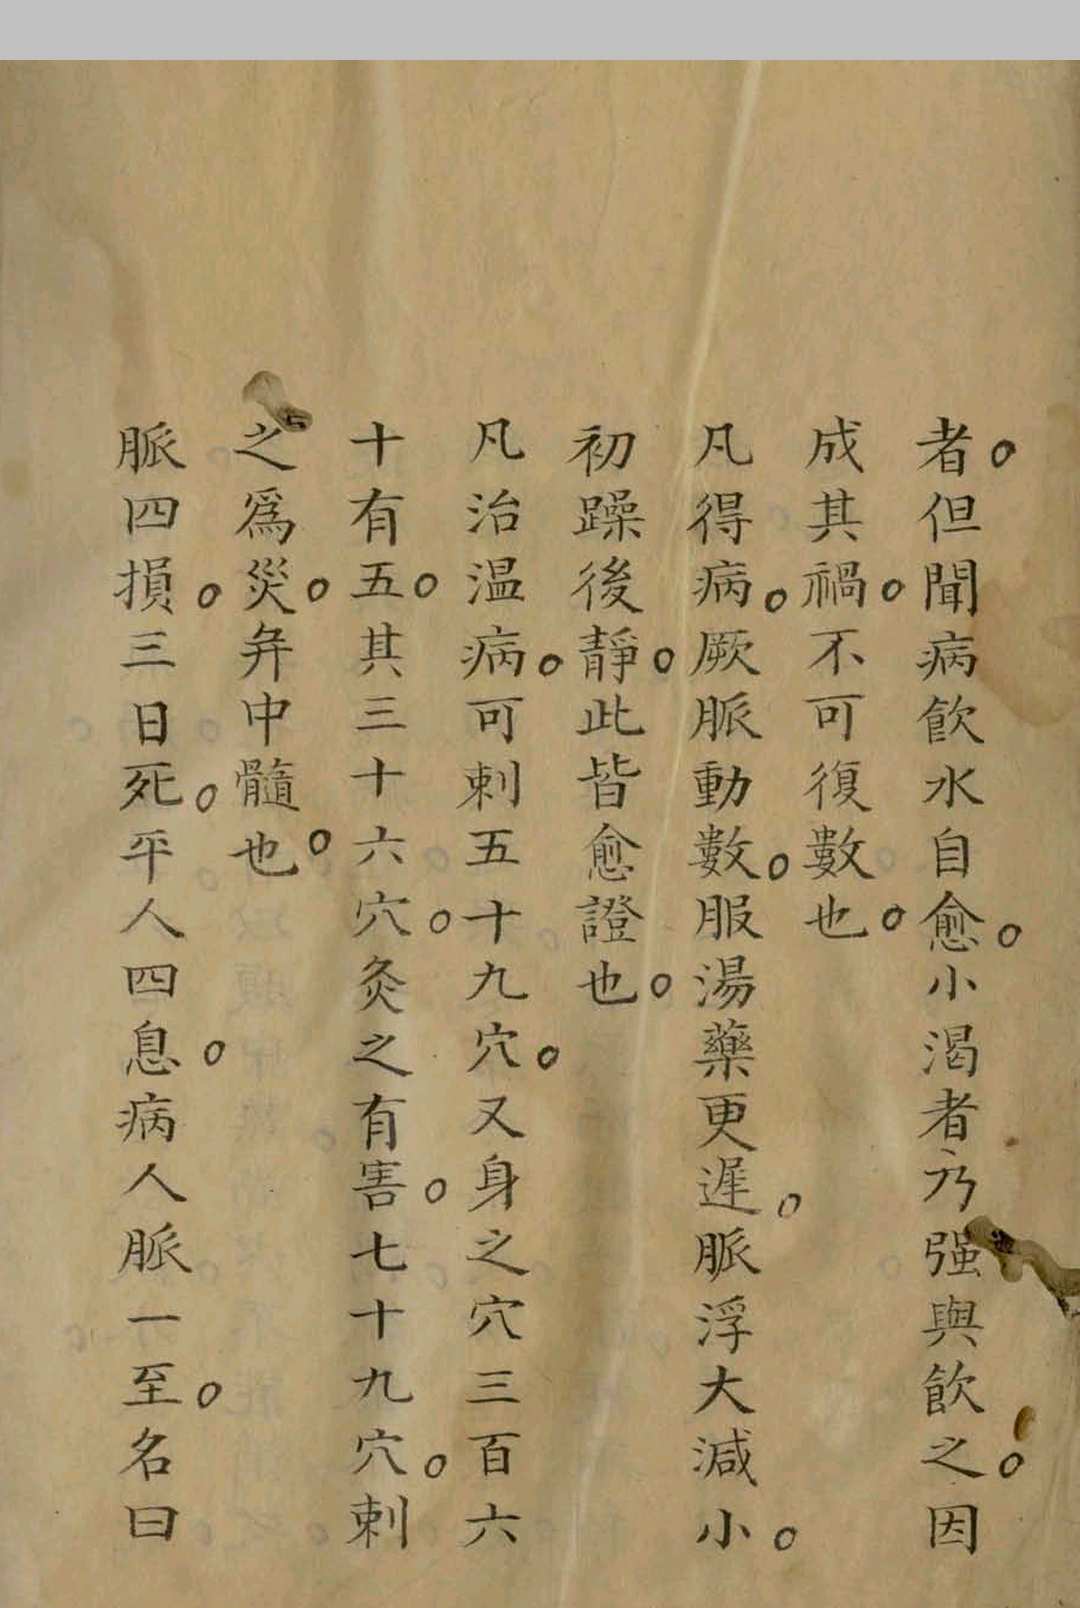 者。但聞病飲水自愈。小渴者乃强與飲之。因
成其禍。不可復數也。
凡得病。厥脈動數。服湯藥更遲。脈浮大減小。
初躁後靜。此皆愈證也。
凡治温病。可刺五十九穴。又身之穴三百六
十有五。其三十六穴。灸之有害。七十九穴。刺
之爲災。并中髓也。
脈四損。三日死。平人四息。病人脈一至。名曰